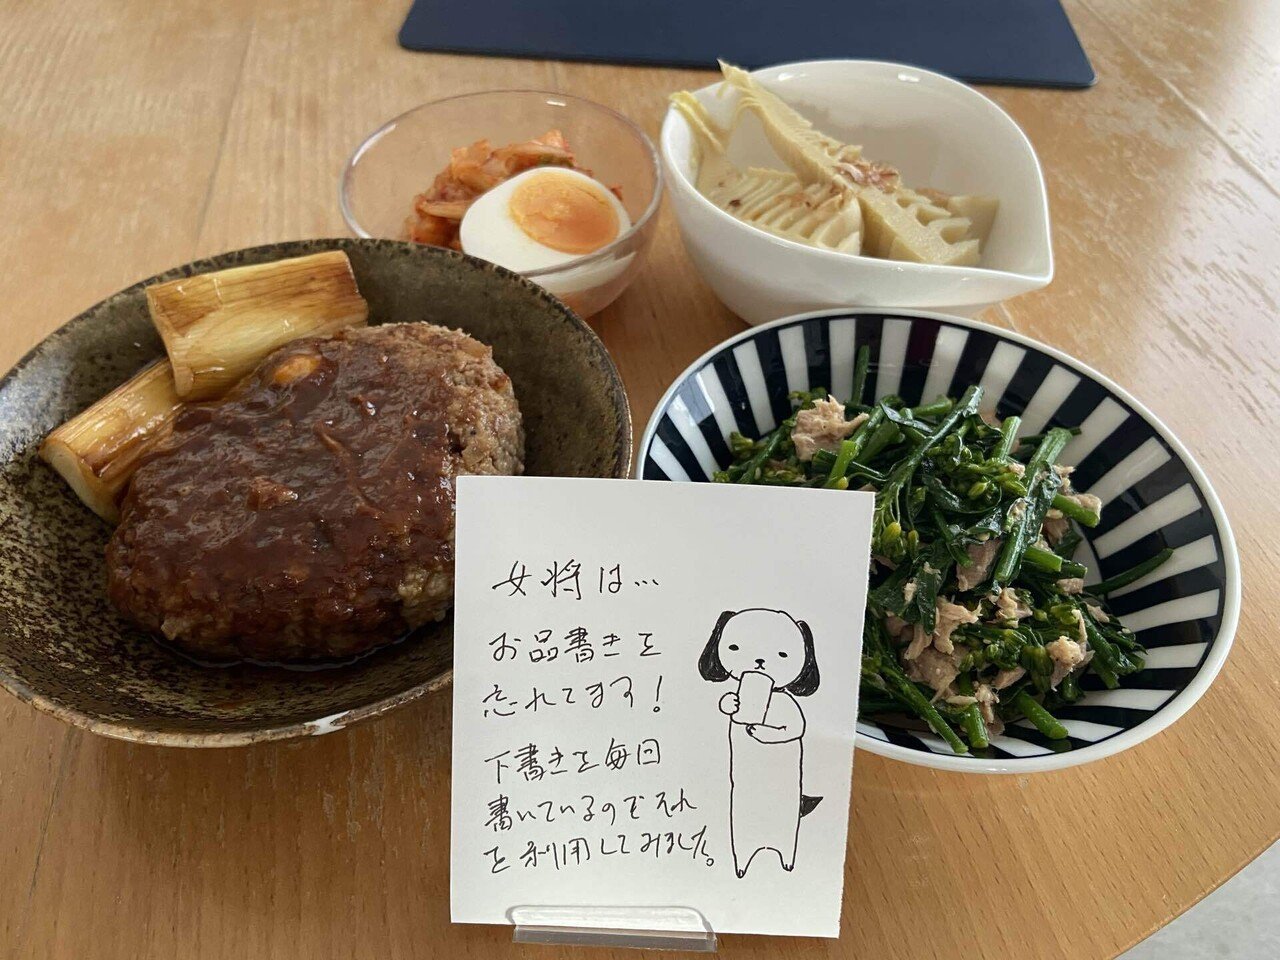 女将は…
お品書きを
忘れてます!
下書きを毎回
書いているのでそれ
を利用してみました。